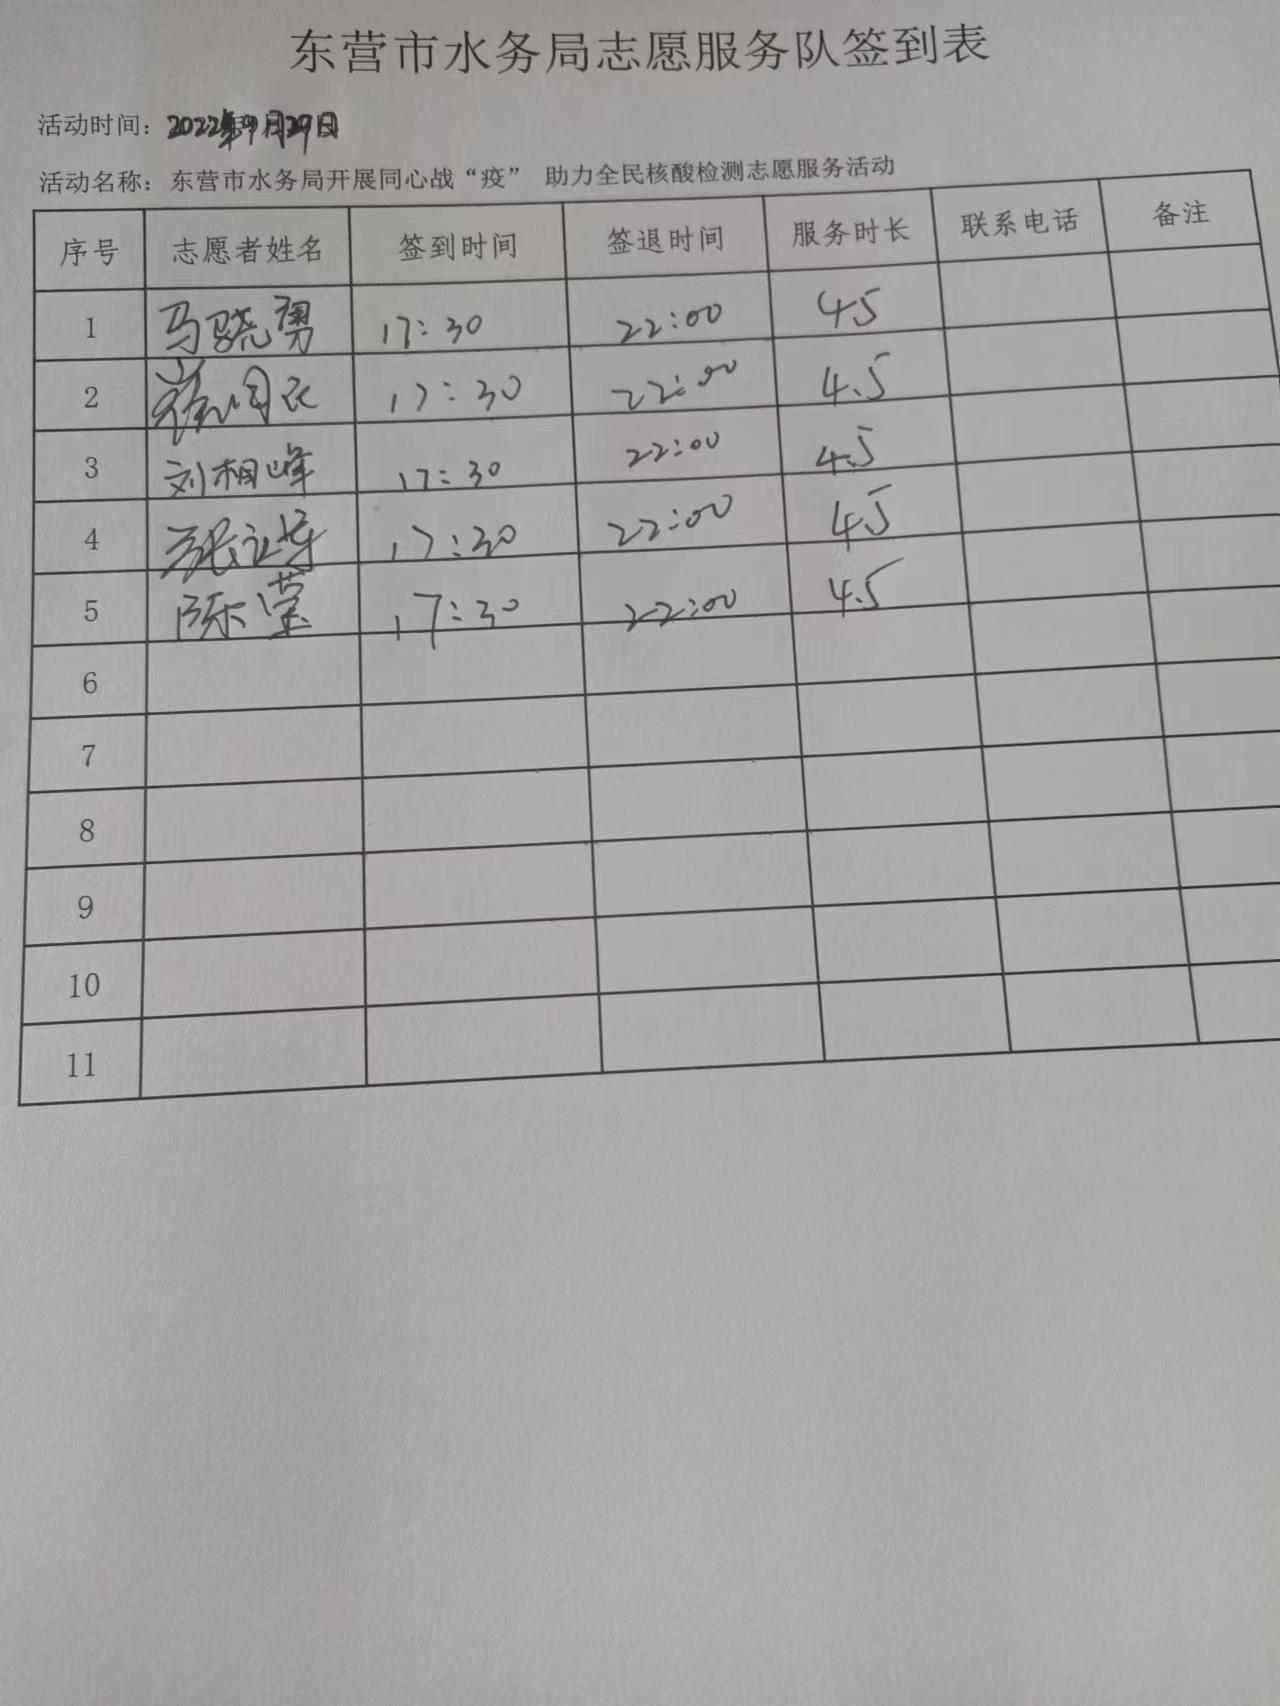 东营市水务局志愿服务队签到表
活动时间：2022年9月29日
活动名称：东营市水务局开展同心战“疫” 助力全民核酸检测志愿服务活动
序号 志愿者姓名 签到时间 签退时间 服务时长 联系电话 备注
1 马晓勇 17:30 22:00 4.5
2 17:30 22:00 4.5
3 刘相峰 17:30 22:00 4.5
4 17:30 22:00 4.5
5 陈莹 17:30 22:00 4.5
6
7
8
9
10
11